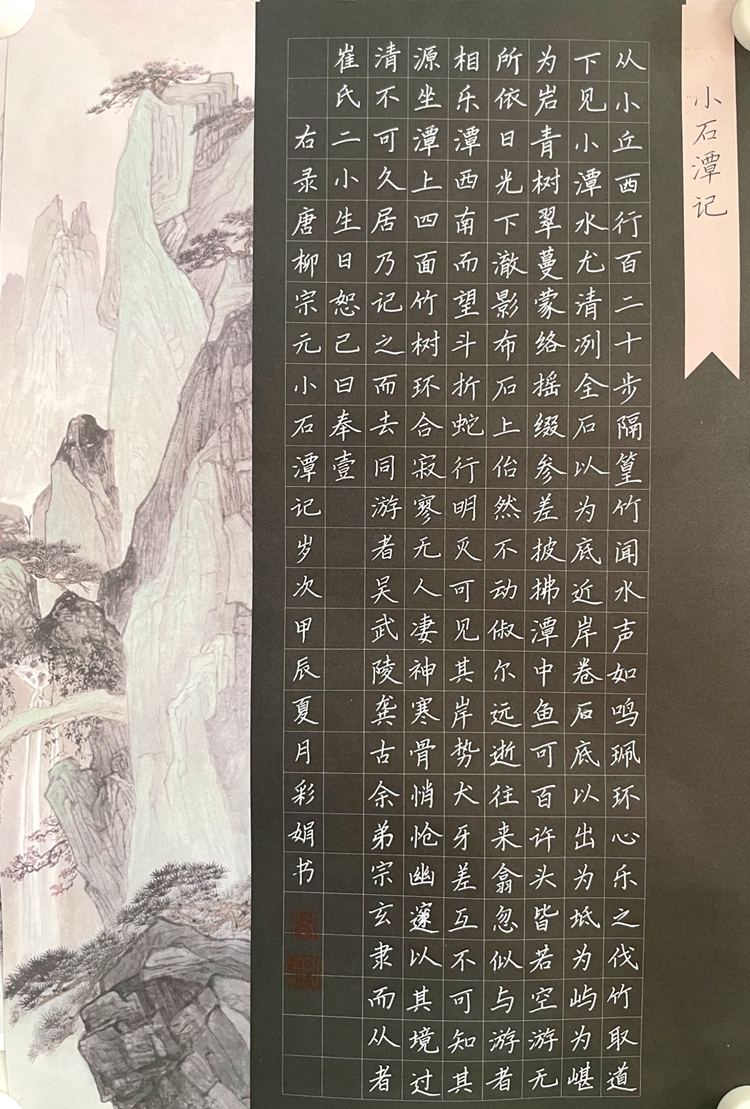 小石潭记
从小丘西行百二十步隔篁竹闻水声如鸣珮环心乐之伐竹取道
下见小潭水尤清冽全石以为底近岸卷石底以出为坻为屿为嵁
为岩青树翠蔓蒙络摇缀参差披拂潭中鱼可百许头皆若空游无
所依日光下澈影布石上佁然不动俶尔远逝往来翕忽似与游者
相乐潭西南而望斗折蛇行明灭可见其岸势犬牙差互不可知其
源坐潭上四面竹树环合寂寥无人凄神寒骨悄怆幽邃以其境过
清不可久居乃记之而去同游者吴武陵龚古余弟宗玄隶而从者
崔氏二小生曰恕己曰奉壹
右录唐柳宗元小石潭记岁次甲辰夏月彩娟书